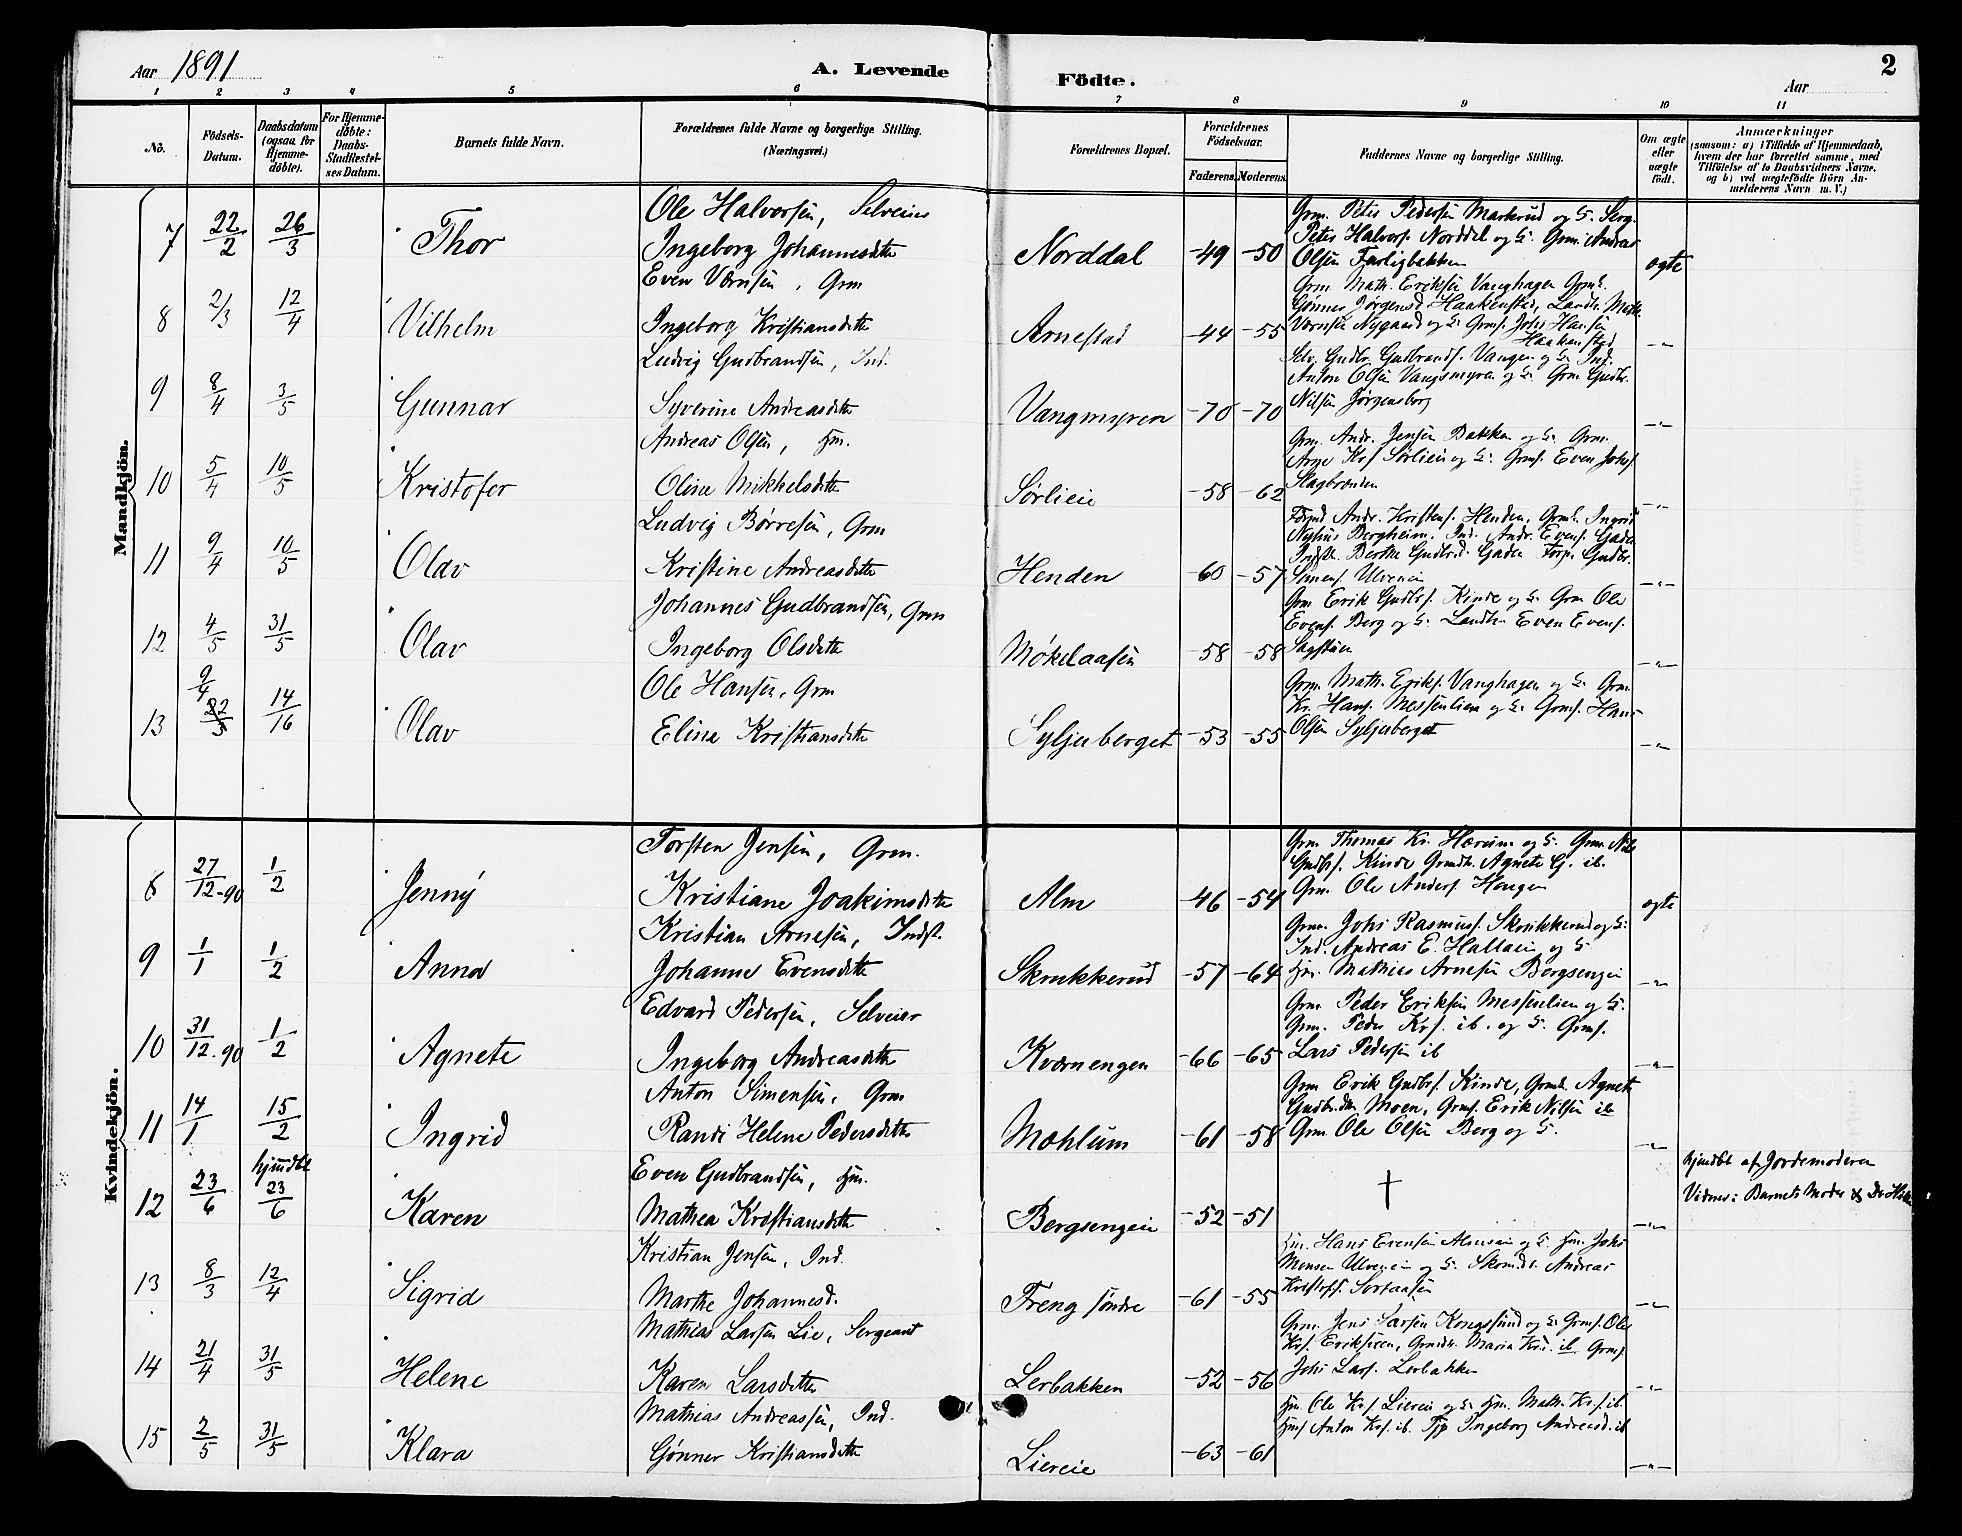 Aar 1891
A. Levende
Födte.
Aar
2
1 2 3 4 5 6 7 8 9 10 11
No.
Födsels-Datum.
Daabsdatum (ogsaa for Hjemmedöbte).
For Hjemmedöbte: Daabs-Stadfæstelses Datum.
Barnets fulde Navn.
Forældrenes fulde Navne og borgerlige Stilling. (Næringsvei.)
Forældrenes Bopæl.
Forældrenes Födselsaar.
Faderens. Moderens.
Faddernes Navne og borgerlige Stilling.
Om ægte eller uægte födt.
Anmærkninger
(saasom: a) i Tilfælde af Hjemmedaab, hvem der har forrettet samme, med Tilföielse af to Daabsvidners Navne, og b) ved uægtefödte Börn Anmelderens Navn m. V.)
Mandkjön.
7 22/2 26/3 Thor
Ole Halvorsen, Selveier
Ingeborg Johannesdtr
Norddal -49 -50
Grm. Peter Pedersen Markrud og H. Serg.
Peter Halvors. Norddal og H. Grm. Andreas
Olsen
ægte
8 2/3 12/4 Vilhelm
Even Værnsen, Grm
Ingeborg Kristiansdtr
Arnestad -44 -55
Grm. Math. Eriksen Vanghagen Grmk.
Gønner Jørgensd. Haakenstad, Landh. Math.
Værnsen Nygaard og H. Grms. Johs Hansen
Haakenstad
-"-
9 8/4 3/5 Gunnar
Ludvig Gudbrandsen, Ind.
Syverine Andreasdtr
Vangmyren -70 -70
Selv. Gudbr. Gudbrands. Vangen og H. Ind.
Anton Olsen Vangsmyren og H. Grm Gudbr.
Nilsen Jørgensborg
-"-
10 5/4 10/5 Kristofer
Andreas Olsen, Hm.
Oline Mikkelsdtr
Sørlieie -58 -62
Grm. Andr. Jensen Bakken og H. Grm.
Arne Krs Sørlien og H. Grms. Even Johs.
Slagbrænden
-"-
11 9/4 10/5 Olav
Ludvig Børresen, Grm
Kristine Andreasdtr
Henden -60 -57
Andr. Kristens. Henden, Grmk. Ingrid
Nyhus Bergheim. Ind. Andr. Evens. Gaden
Berthe Gudbrd. Gaden Gudbr.
Simens. Ulveneie
-"-
12 4/5 31/5 Olav
Johannes Gudbrandsen, Grm
Ingeborg Olsdtr
Møkelaasen -58 -58
Grm Erik Gudbrs. Kinde og H. Grm. Ole
Evens. Berg og H. Landh. Even Evens.
Sagstuen
-"-
13 9/4 22/5 14/16 Olav
Ole Hansen, Grm
Eline Kristiansdtr
Syljuberget -53 -55
Grm. Math. Eriks. Vanghagen og H. Grm.
Kr. Hans. Messenlien og H. Grms. Hans
Olsen Syljuberget
-"-
Kvindekjön.
8 27/12-90 1/2 Jenny
Torsten Jensen, Grm.
Kristiane Joakimsdtr
Alm -46 -54
Grm Thomas Kr. Hærum og H. Grm. Nils
Gudbrs. Kinde Grmdtr. Agnete G. ib.
Grm. Ole Anders. Haugen
ægte
9 1/1 1/2 Anna
Kristian Arnesen, Indst.
Johanne Evensdtr
Skrukkerud -57 -64
Grm. Johs Rasmuss. Skrukkerud og H.
Ind. Andreas E. Hallaein og H
Hm. Mathias Arnesen Bergsengen
-"-
10 31/12-90 1/2 Agnete
Edvard Pedersen, Selveier
Ingeborg Andreasdtr
Kværnengen -66 -65
Grm Peder Eriksen Messenlien og H.
Grm. Peder Krs. ib. og H. Grms.
Lars Pedersen ib
-"-
11 14/1 15/2 Ingrid
Anton Simensen, Grm
Randi Helene Pedersdtr
Mæhlum -61 -58
Grm Erik Gudbrs. Kinde, Grmk. Agnete
Gudbrdtr. Moen, Grms. Erik Nilsen ib
Grm. Ole Olsen Berg og H.
-"-
12 23/6 hjemdbt 23/6 Karen
Even Gudbrandsen, Hm.
Mathea Kristiansdtr
Bergsengeie -52 -51
†
-"-
hjemdbt af Jordemoderen
Vidner: Barnets Moder &
13 8/3 12/4 Sigrid
Kristian Jensen, Ind.
Marthe Johannesd.
Freng søndre -61 -55
Hm. Hans Evensen Almseie og H. Hm. Johs
Monsen Ulveneie og H. Skomdtr. Andreas
Kristofs. Sortaasen
-"-
14 21/4 31/5 Helene
Mathias Larsen Lie, Sergeant
Karen Larsdatter
Lerbakken -52 -56
Grm. Jens Larsen Kongssund og H. Grms. Ole
Krs. Eriksveen, Grmdtr. Maria Krd. ib. Grms
Johs Lars. Lerbakken
-"-
15 2/5 31/5 Klara
Mathias Andreassen, Ind.
Gønner Kristiansdtr
Liereie -63 -61
Hm Ole Krs. Liereie og H. Hm. Math. Krs. ib.
Hms Anton Krs. ib. Tjp Ingeborg Andreasd. ib
-"-